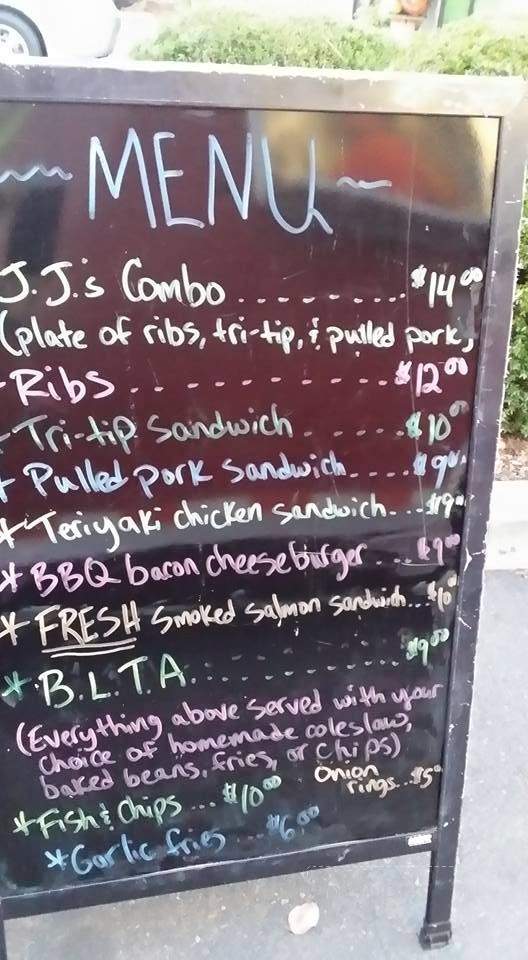 MENU
J.J.'s Combo ........ $14.00
(plate of ribs, tri-tip, & pulled pork,
Ribs ........ $12.00
Tri-tip Sandwich .... $10.00
* Pulled pork Sandwich .... $9.00
* Teriyaki chicken sandwich... $9.00
* BBQ bacon cheeseburger ... $9.00
* FRESH Smoked Salmon Sandwich... $10.00
* B.L.T.A. ........ $9.00
(Everything above served with your
choice of homemade coleslaw,
baked beans, fries, or chips)
Onion
rings... $5.00
* Fish & Chips ... $10.00
* Garlic fries ... $6.00